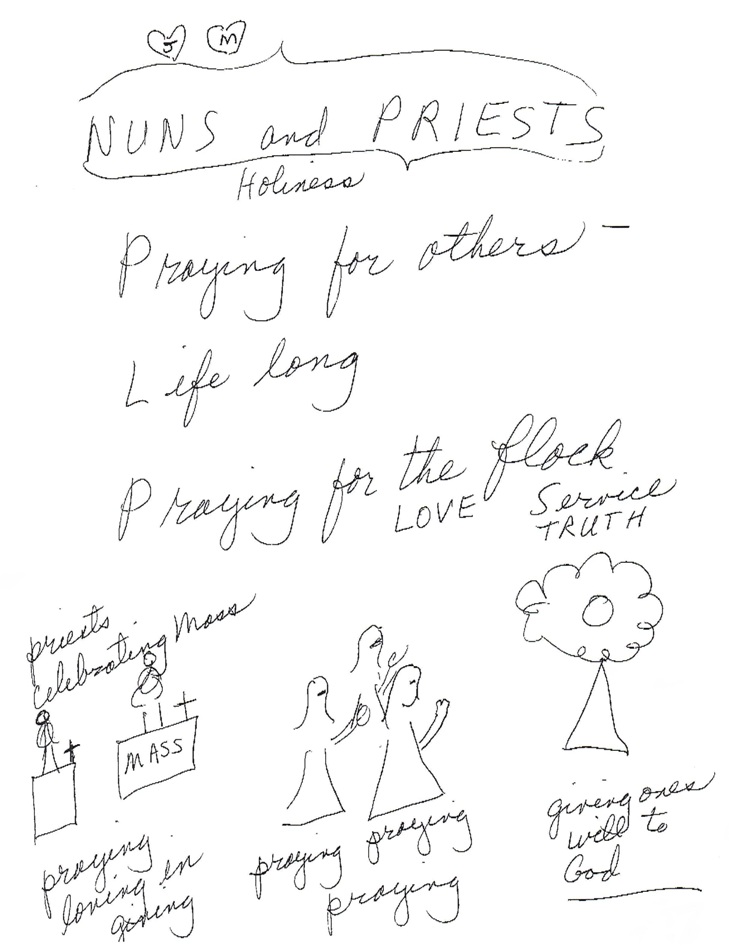 J M
NUNS and PRIESTS
Holiness
Praying for others –
Life long
Praying for the flock
LOVE Service
TRUTH
priests
celebrating Mass
MASS
praying
loving in
giving
praying praying
praying
giving ones
will to
God